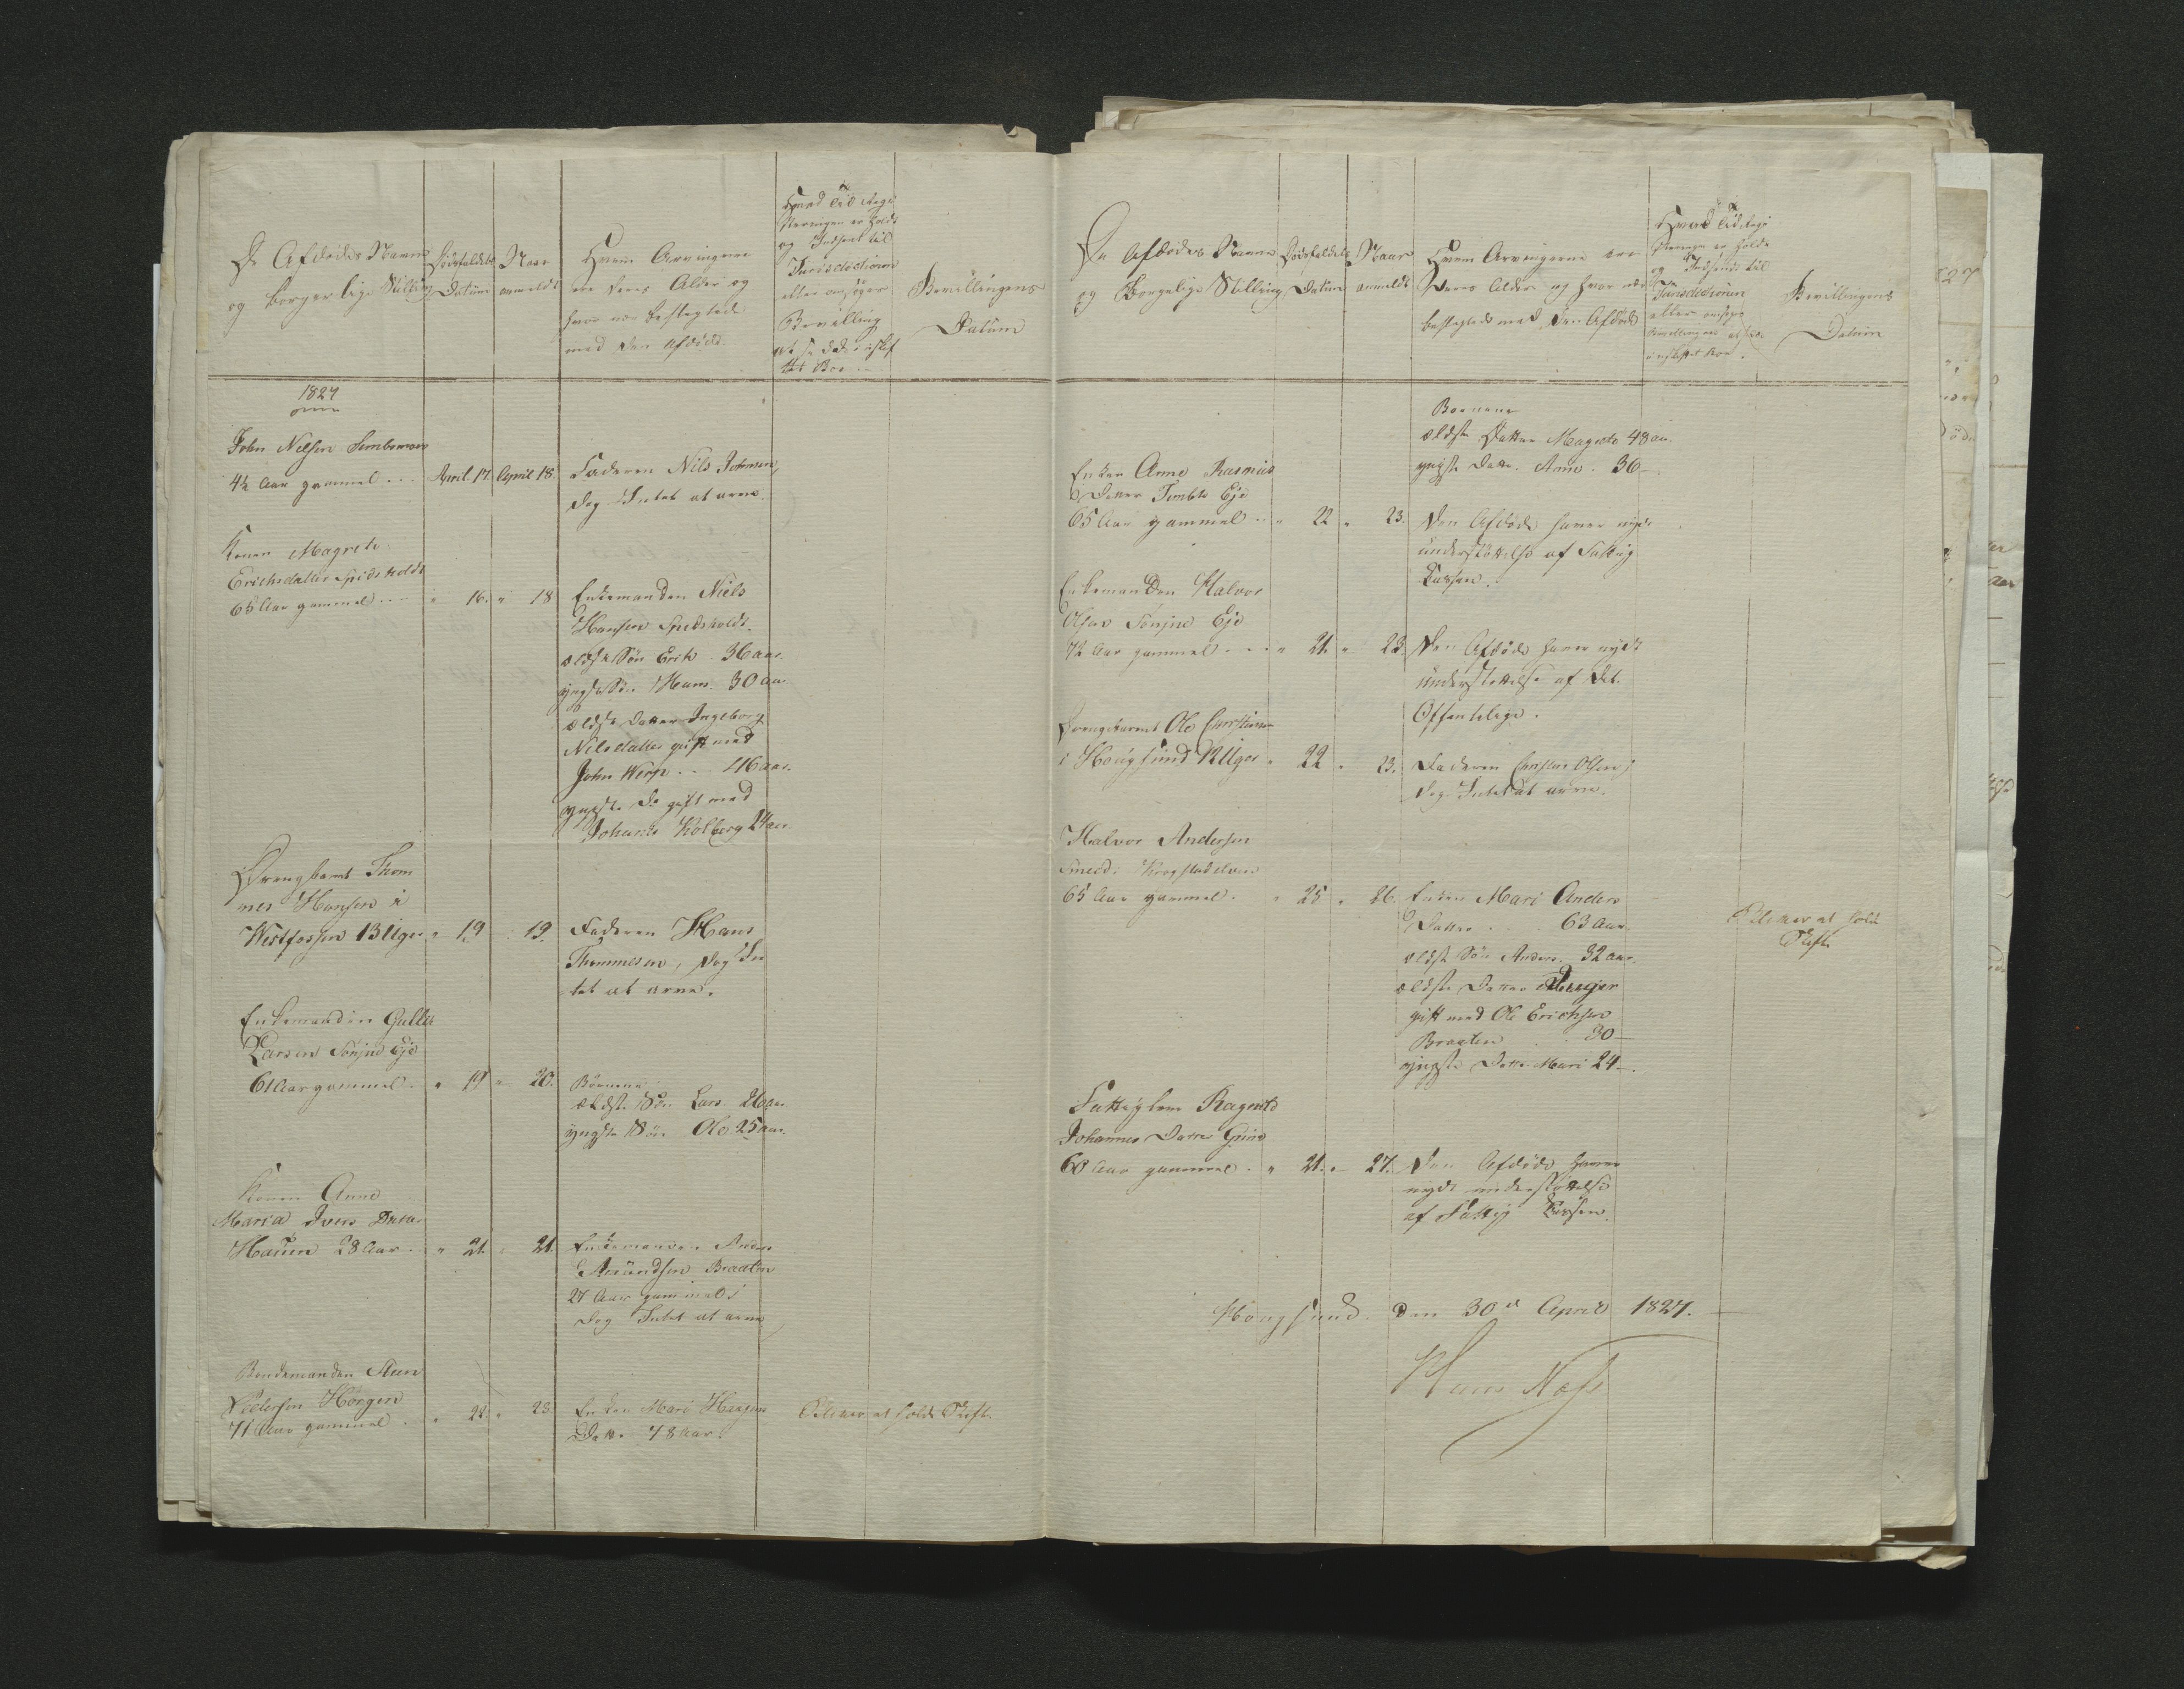 De Afdødes Navne
og borgerlige Stilling
Dødsfaldets
Datum
Naar
anmeldt
Hvem Arvingerne
ere deres Alder og
hvor nær beslegtede
med den Afdøde.
Hvad Tid Regi
streringen er holdt
og Indsent til
Jurisdictionen
eller ansøger
Bevilling
at sidde i uskif
tet Boe
Bevillingens
Datum
1827
John Nilsen
4½ Aar gammel ... April 17. April 18.
Faderen Nils Johnsen,
dog Intet at arve.
Konen Magrete
Erichsdatter Spidsholdt
65 Aar gammel ... " 16. " 18
Enkemanden Niels
Hansen Spidsholdt.
ældste Søn Erik . 36 aar.
yngste Søn Hans. 30 aar.
ældste Datter Ingeborg
Nilsdatter gift med
John Werp ... 46 aar.
yngste Do gift med
Johanes Kolberg 24 aar.
Drengebarnet Thom
mes Hansen i
Westfossen 13 Uger " 19 " 19.
Faderen Hans
Thommesen, dog In
tet at arve.
Enkemanden Gulle
Larsen Eje
61 Aar gammel . " 19 " 20.
Børnene
ældste Søn Lars. 26 aar
yngste Søn Ole. 25 aar.
Konen Anne
Maria Ivers Datter
Haun 28 Aar .. " 21. " 21.
Enkemanden Anders
Amundsen Braaten
27 Aar gammel;
dog Intet at arve
Bondemanden Steen
Pedersen Horgen
71 Aar gammel . " 22. " 23.
Enken Mari Haagen
Datter 78 Aar.
at holde Skifte
De Afdødes Navne
og Borgerlige Stilling
Dødsfaldets
Datum
Naar
anmeldt
Hvem Arvingerne ere
Deres Alder og hvor nær
beslegtede med den Afdøde
Hvad Tid Regi
streringen er holdt
og Indsendt til
Jurisdictionen
eller ansøger
Bevilling at sidde
i uskiftet Boe.
Bevillingens
Datum
Børnene
ældste Datter Magrete 48 aar.
yngste Datter. Anne . 36 —
Enken Anne Rasmus
Datter Temble Eje
65 Aar gammel .. " 22 " 23.
Den Afdøde haver nydt
understøttelse af Fattig
Cassen.
Enkemanden Halvor
Olsen Eje
72 Aar gammel ... " 21. " 23.
Den Afdøde haver nydt
understøttelse af det
Offentlige.
Drengebarnet Ole Christian
i Hougsund 12 Uger " 22 " 23.
Faderen Christian Olsen;
dog Intet at arve.
Halvor Andersen
Smed. Krogstadelven
65 Aar gammel . " 25 " 26.
Enken Mari Anders
Datter ... 63 Aar.
ældste Søn Anders. 32 aar.
ældste Datter
gift med Ole Erichsen
Braaten .. 30 —
yngste Datter Mari 24 —
at holde
Skifte
Fattiglem Ragnild
Johannes Datter
60 Aar gammel . " 21. " 27.
Den Afdøde haver
nydt understøttelse
af Fattig Cassen.
Hougsund den 30te April 1827.
Hans Næss